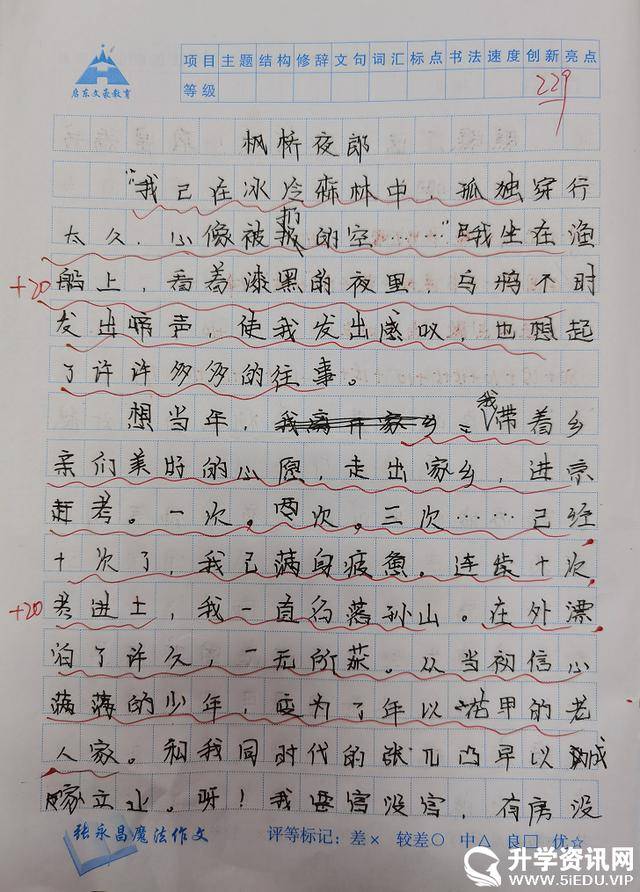 启东文豪教育
项目 主题 结构 修辞 文句 词汇 标点 书法 速度 创新 亮点
等级
229
枫桥夜郎
"我已在冰冷森林中，孤独穿行
太久，心像被扔的空……"我坐在渔
+20
船上，看着漆黑的夜里，乌鸦不时
发出啼声，使我发出感叹，也想起
了许许多多的往事。
想当年，我离开家乡，我带着乡
亲们美好的心愿，走出家乡，进京
赶考。一次。两次。三次……已经
十次了，我已满身疲惫。连续十次
+20
考进士，我一直名落孙山。在外漂
泊了许久，一无所获。从当初信心
满满的少年，变为了年以古甲的老
人家。和我同时代的张兀凸早以成
家立业。呀！我要官没官，有房没
张永昌魔法作文
评等标记：差× 较差○ 中△ 良□ 优☆
升学资讯网
www.5iEDU.VIP